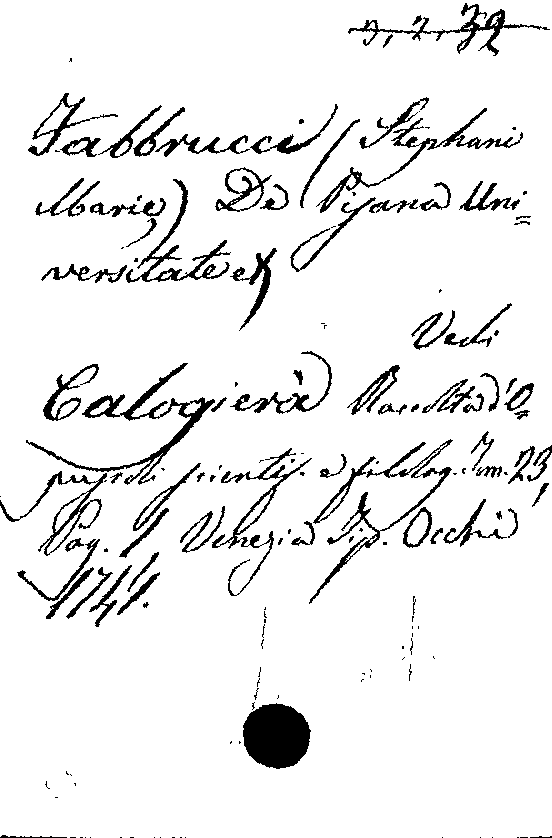 3, 2, 32
Fabbrucci (Stephani
Marie) De Pisana Uni=
versitate et
Vedi
Calogierà Raccolta d'O=
puscoli scientif. e filolog. Tom. 23,
Pag. 1, Venezia Tip. Occhi
1741.